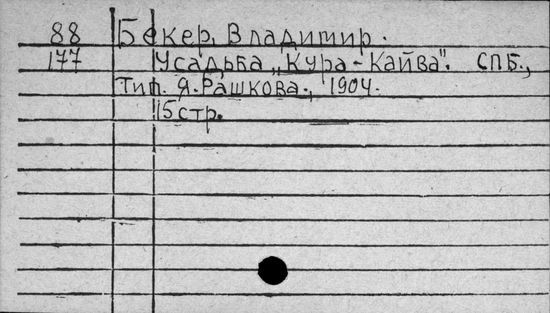 88 Бекер, Владимир.
177 Усадьба „Кура-Кайва". СПБ.,
Тип. Я. Рашкова., 1904.
15 стр.